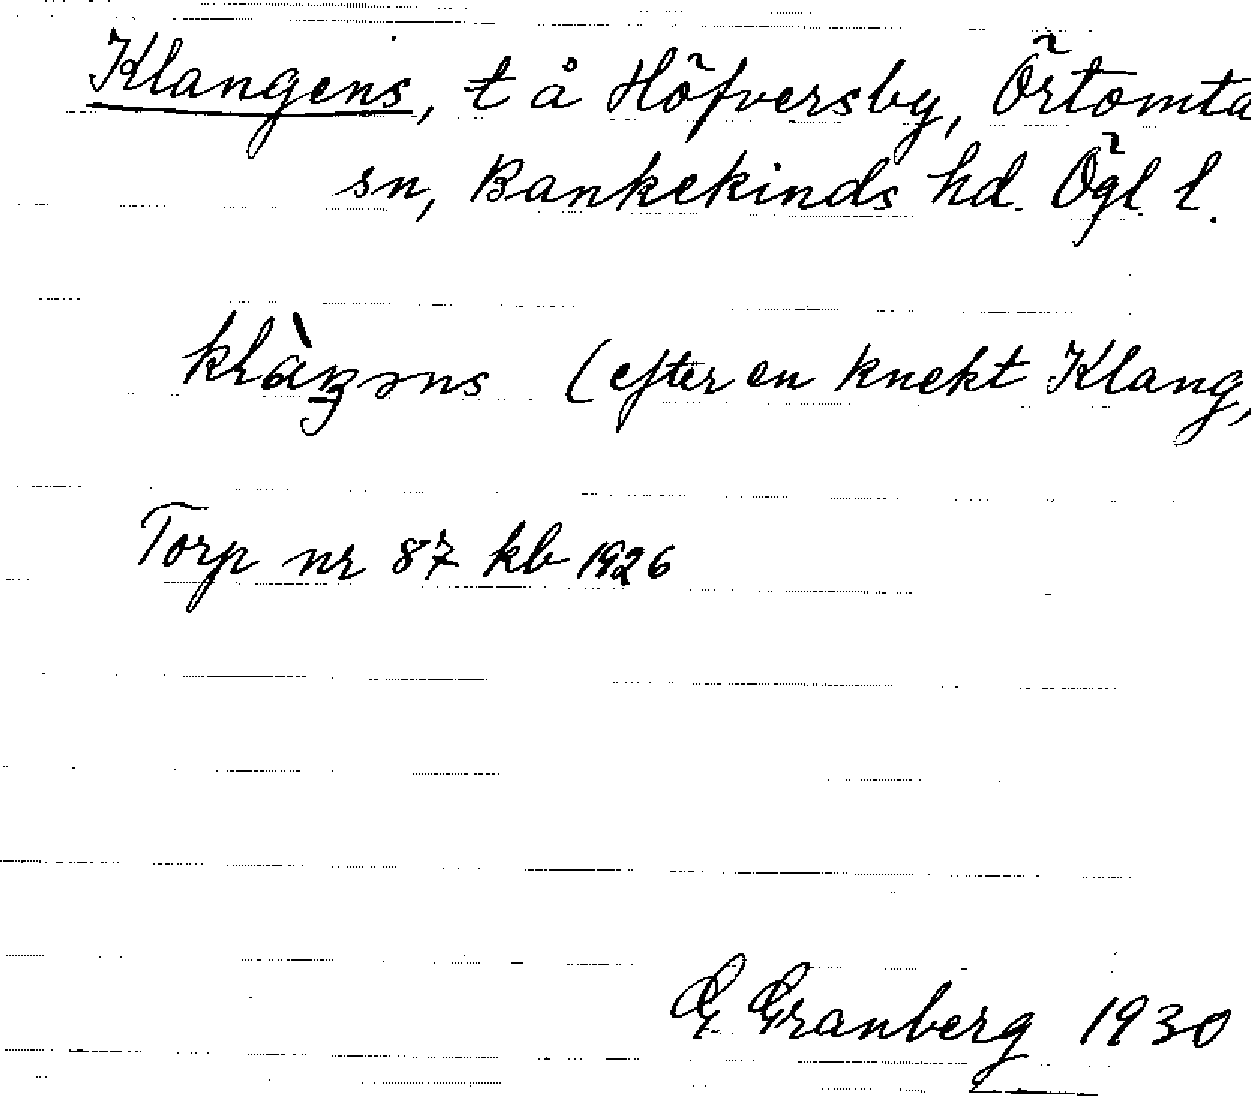 Klangens, t å Höfversby, Örtomta
sn, Bankekinds hd. Ögl. l.
klàŋəns (efter en knekt Klang,
Torp nr 87 kb 1926
G Granberg 1930